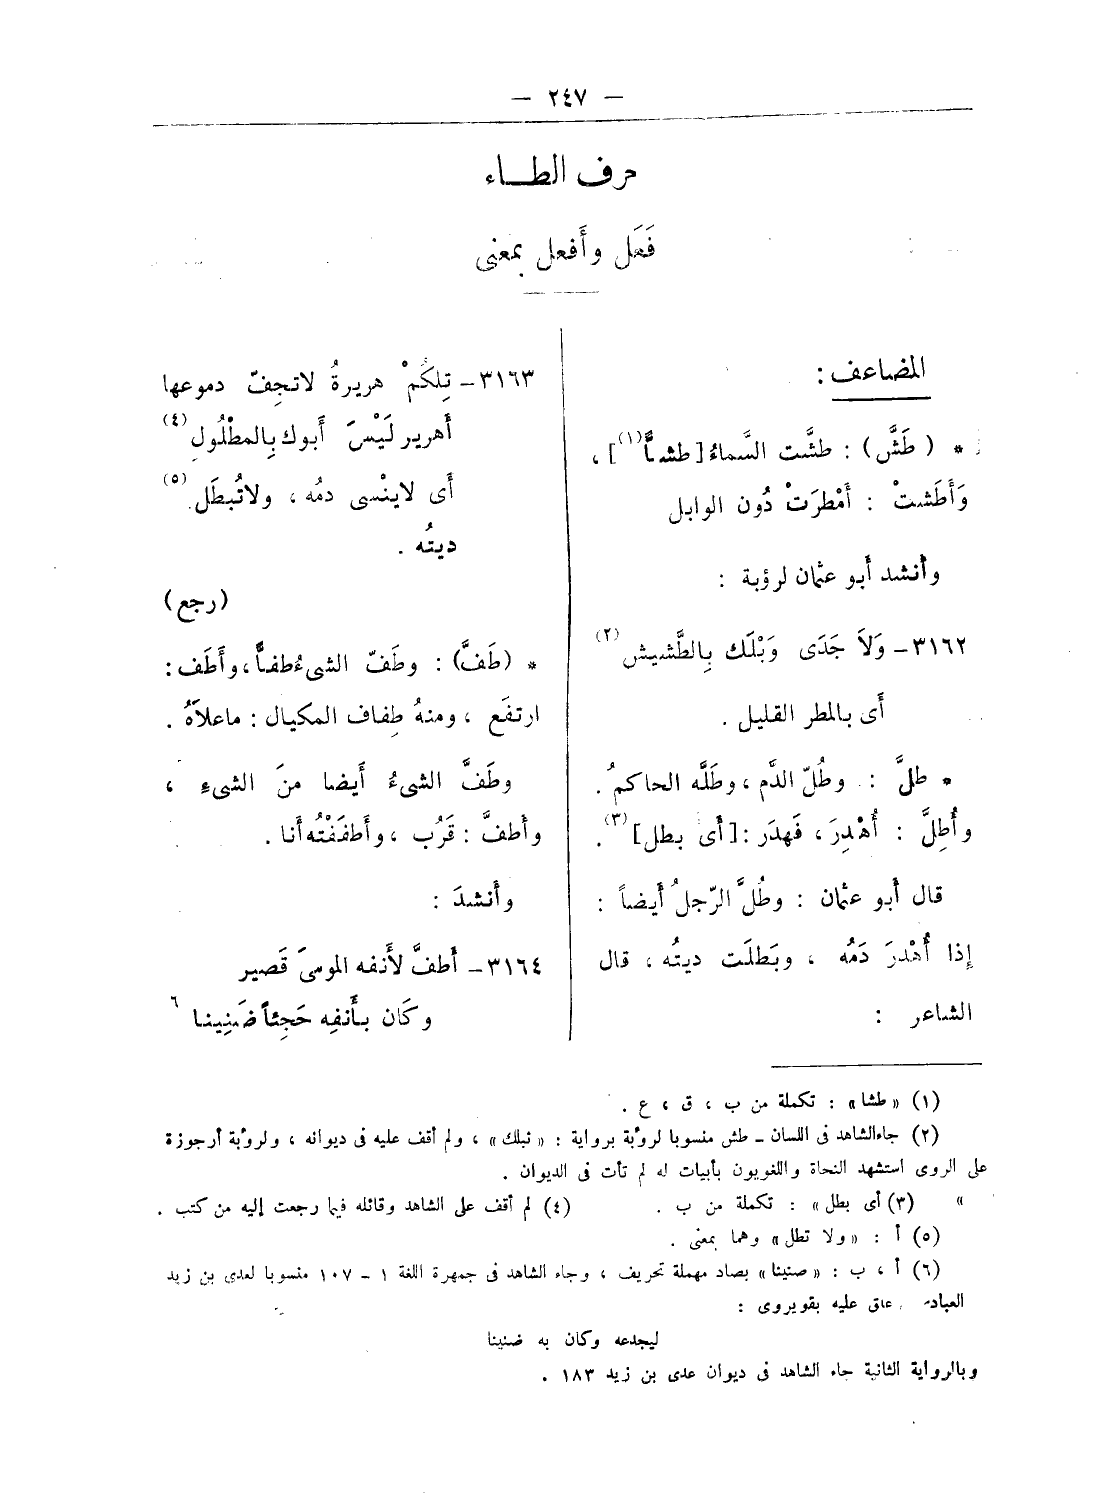 — ٢٤٧ —
حرف الطـــاء
فَعَل وأَفعل بمعنى
المضاعف :
* ( طَشَّ ) : طشَّت السَّماءُ [ طشاًّ(١) ] ،
وَأَطَشتْ : أَمْطرَتْ دُون الوابل
وأنشد أَبو عثمان لرؤبة :
٣١٦٢ – وَلاَ جَدَى وَبْلَك بِالطَّشيش (٢)
أَى بالمطر القليل .
* طلَّ : وطُلّ الدَّم ، وطَلَّه الحاكمُ .
وأُطِلَّ : أُهْدِرَ ، فَهدَر : [ أى بطل ] (٣) .
قال أَبو عثمان : وطُلَّ الرّجلُ أَيضاً :
إِذا أُهْدرَ دَمُه ، وبَطلَت ديتُه ، قال
الشاعر :
٣١٦٣ – تِلكُمْ هريرةُ لاتجفّ دموعها
أَهرير لَيْسَ أَبوك بِالمطْلُولِ (٤)
أَى لاينْسى دمُه ، ولاتُبطَل (٥)
ديتُه .
(رجع)
* (طَفَّ) : وطَفّ الشىءُ طفاًّ ، وأَطَف :
ارتفَع ، ومنهُ طِفاف المكيال : ماعلاَهُ .
وطَفَّ الشىءُ أَيضا منَ الشىءِ ،
وأَطفَّ : قَرُب ، وأَطفَفْتُه أَنا .
وأَنشدَ :
٣١٦٤ – أَطفَّ لأَنفه الموسىَ قَصير
وكَان بأَنفِه حَجِئاً ضَنِينا ٦
(١) « طشا » : تكملة من ب ، ق ، ع .
(٢) جاء الشاهد فى اللسان – طش منسوبا لرؤبة برواية : « نبلك » ، ولم أقف عليه فى ديوانه ، ولرؤبة أرجوزة
على الروى استشهد النحاة واللغويون بأبيات له لم تأت فى الديوان .
» (٣) أى بطل » : تكملة من ب . (٤) لم أقف على الشاهد وقائله فيما رجعت إليه من كتب .
(٥) أ : « ولا تطل » وهما بمعنى .
(٦) أ ، ب : « صنينا » بصاد مهملة تحريف ، وجاء الشاهد فى جمهرة اللغة ١ – ١٠٧ منسوبا لعدى بن زيد
علق عليه بقو ويروى :
ليجدعه وكان به ضنينا
وبالرواية الثانية جاء الشاهد فى ديوان عدى بن زيد ١٨٣ .